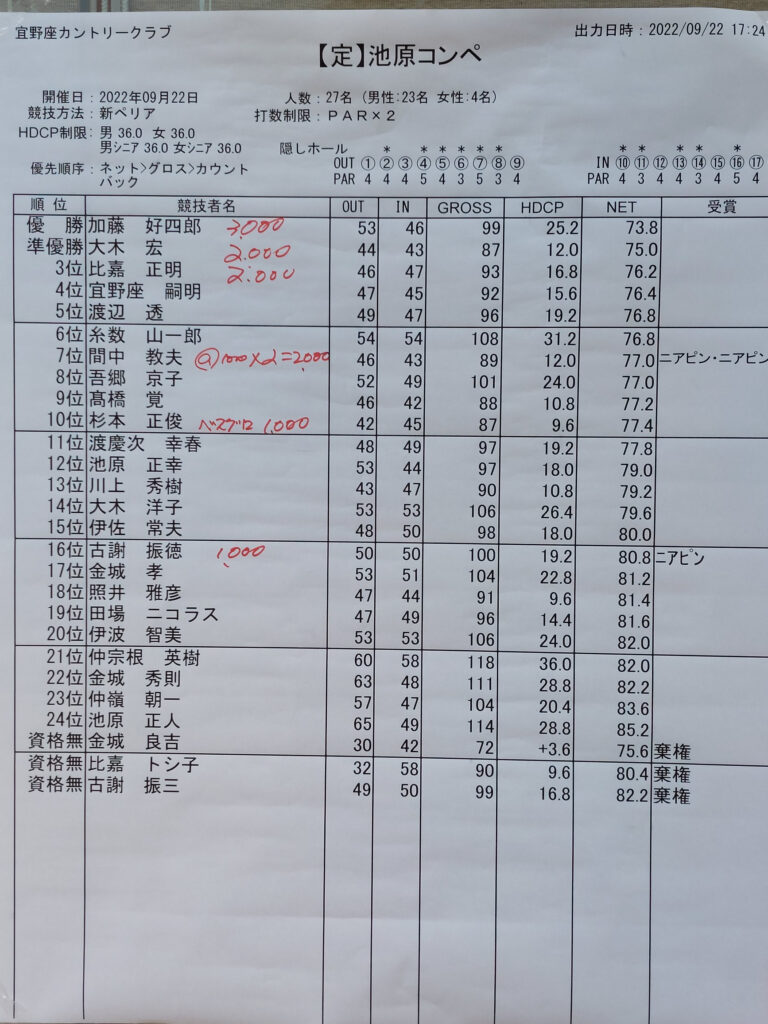 宜野座カントリークラブ 出力日時:2022/09/22 17:24
【定】池原コンペ
開催日:2022年09月22日 人数:27名 (男性:23名 女性:4名)
競技方法:新ペリア 打数制限:PAR×2
HDCP制限: 男 36.0 女 36.0
男シニア 36.0 女シニア 36.0 隠しホール * * * * * * * * * * * *
優先順序:ネット>グロス>カウント OUT ① ② ③ ④ ⑤ ⑥ ⑦ ⑧ ⑨ IN ⑩ ⑪ ⑫ ⑬ ⑭ ⑮ ⑯ ⑰
バック PAR 4 4 4 5 4 3 5 3 4 PAR 4 3 4 4 3 4 5 4
順位 競技者名 OUT IN GROSS HDCP NET 受賞
優勝 加藤 好四郎 3,000 53 46 99 25.2 73.8
準優勝 大木 宏 2.000 44 43 87 12.0 75.0
3位 比嘉 正明 2.000 46 47 93 16.8 76.2
4位 宜野座 嗣明 47 45 92 15.6 76.4
5位 渡辺 透 49 47 96 19.2 76.8
6位 糸数 山一郎 54 54 108 31.2 76.8
7位 間中 教夫 @1000×2=2,000 46 43 89 12.0 77.0 ニアピン・ニアピン
8位 吾郷 京子 52 49 101 24.0 77.0
9位 髙橋 覚 46 42 88 10.8 77.2
10位 杉本 正俊 ベスグロ 1,000 42 45 87 9.6 77.4
11位 渡慶次 幸春 48 49 97 19.2 77.8
12位 池原 正幸 53 44 97 18.0 79.0
13位 川上 秀樹 43 47 90 10.8 79.2
14位 大木 洋子 53 53 106 26.4 79.6
15位 伊佐 常夫 48 50 98 18.0 80.0
16位 古謝 振徳 1,000 50 50 100 19.2 80.8 ニアピン
17位 金城 孝 53 51 104 22.8 81.2
18位 照井 雅彦 47 44 91 9.6 81.4
19位 田場 ニコラス 47 49 96 14.4 81.6
20位 伊波 智美 53 53 106 24.0 82.0
21位 仲宗根 英樹 60 58 118 36.0 82.0
22位 金城 秀則 63 48 111 28.8 82.2
23位 仲嶺 朝一 57 47 104 20.4 83.6
24位 池原 正人 65 49 114 28.8 85.2
資格無 金城 良吉 30 42 72 +3.6 75.6 棄権
資格無 比嘉 トシ子 32 58 90 9.6 80.4 棄権
資格無 古謝 振三 49 50 99 16.8 82.2 棄権